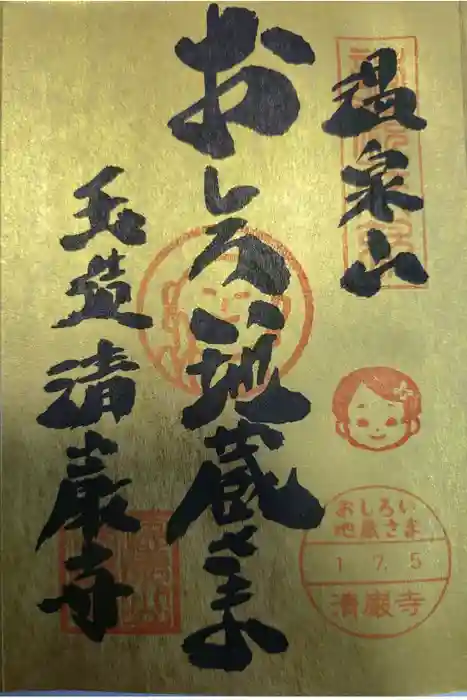 温泉山
おしろい地蔵さま
玉造 清巌寺
おしろい
地蔵さま
1.7.5
清巖寺